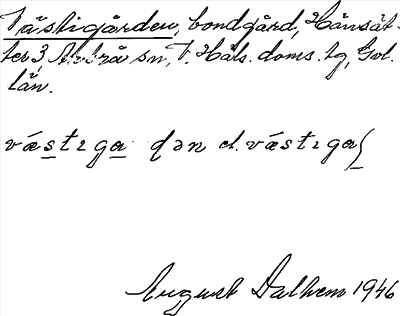 Västigården, bondgård, Hånsät-
ter 3, Alfta sn, V. Häls. doms. tg, Gvl.
län.
væstɩga dən el. væstɩga
August Dalhem 1946